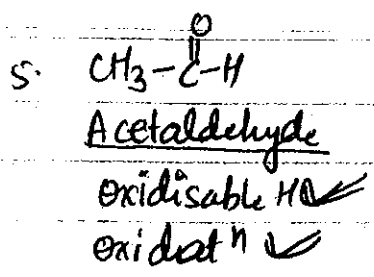 O
5. CH3-C-H
Acetaldehyde
oxidisable H
oxidatn